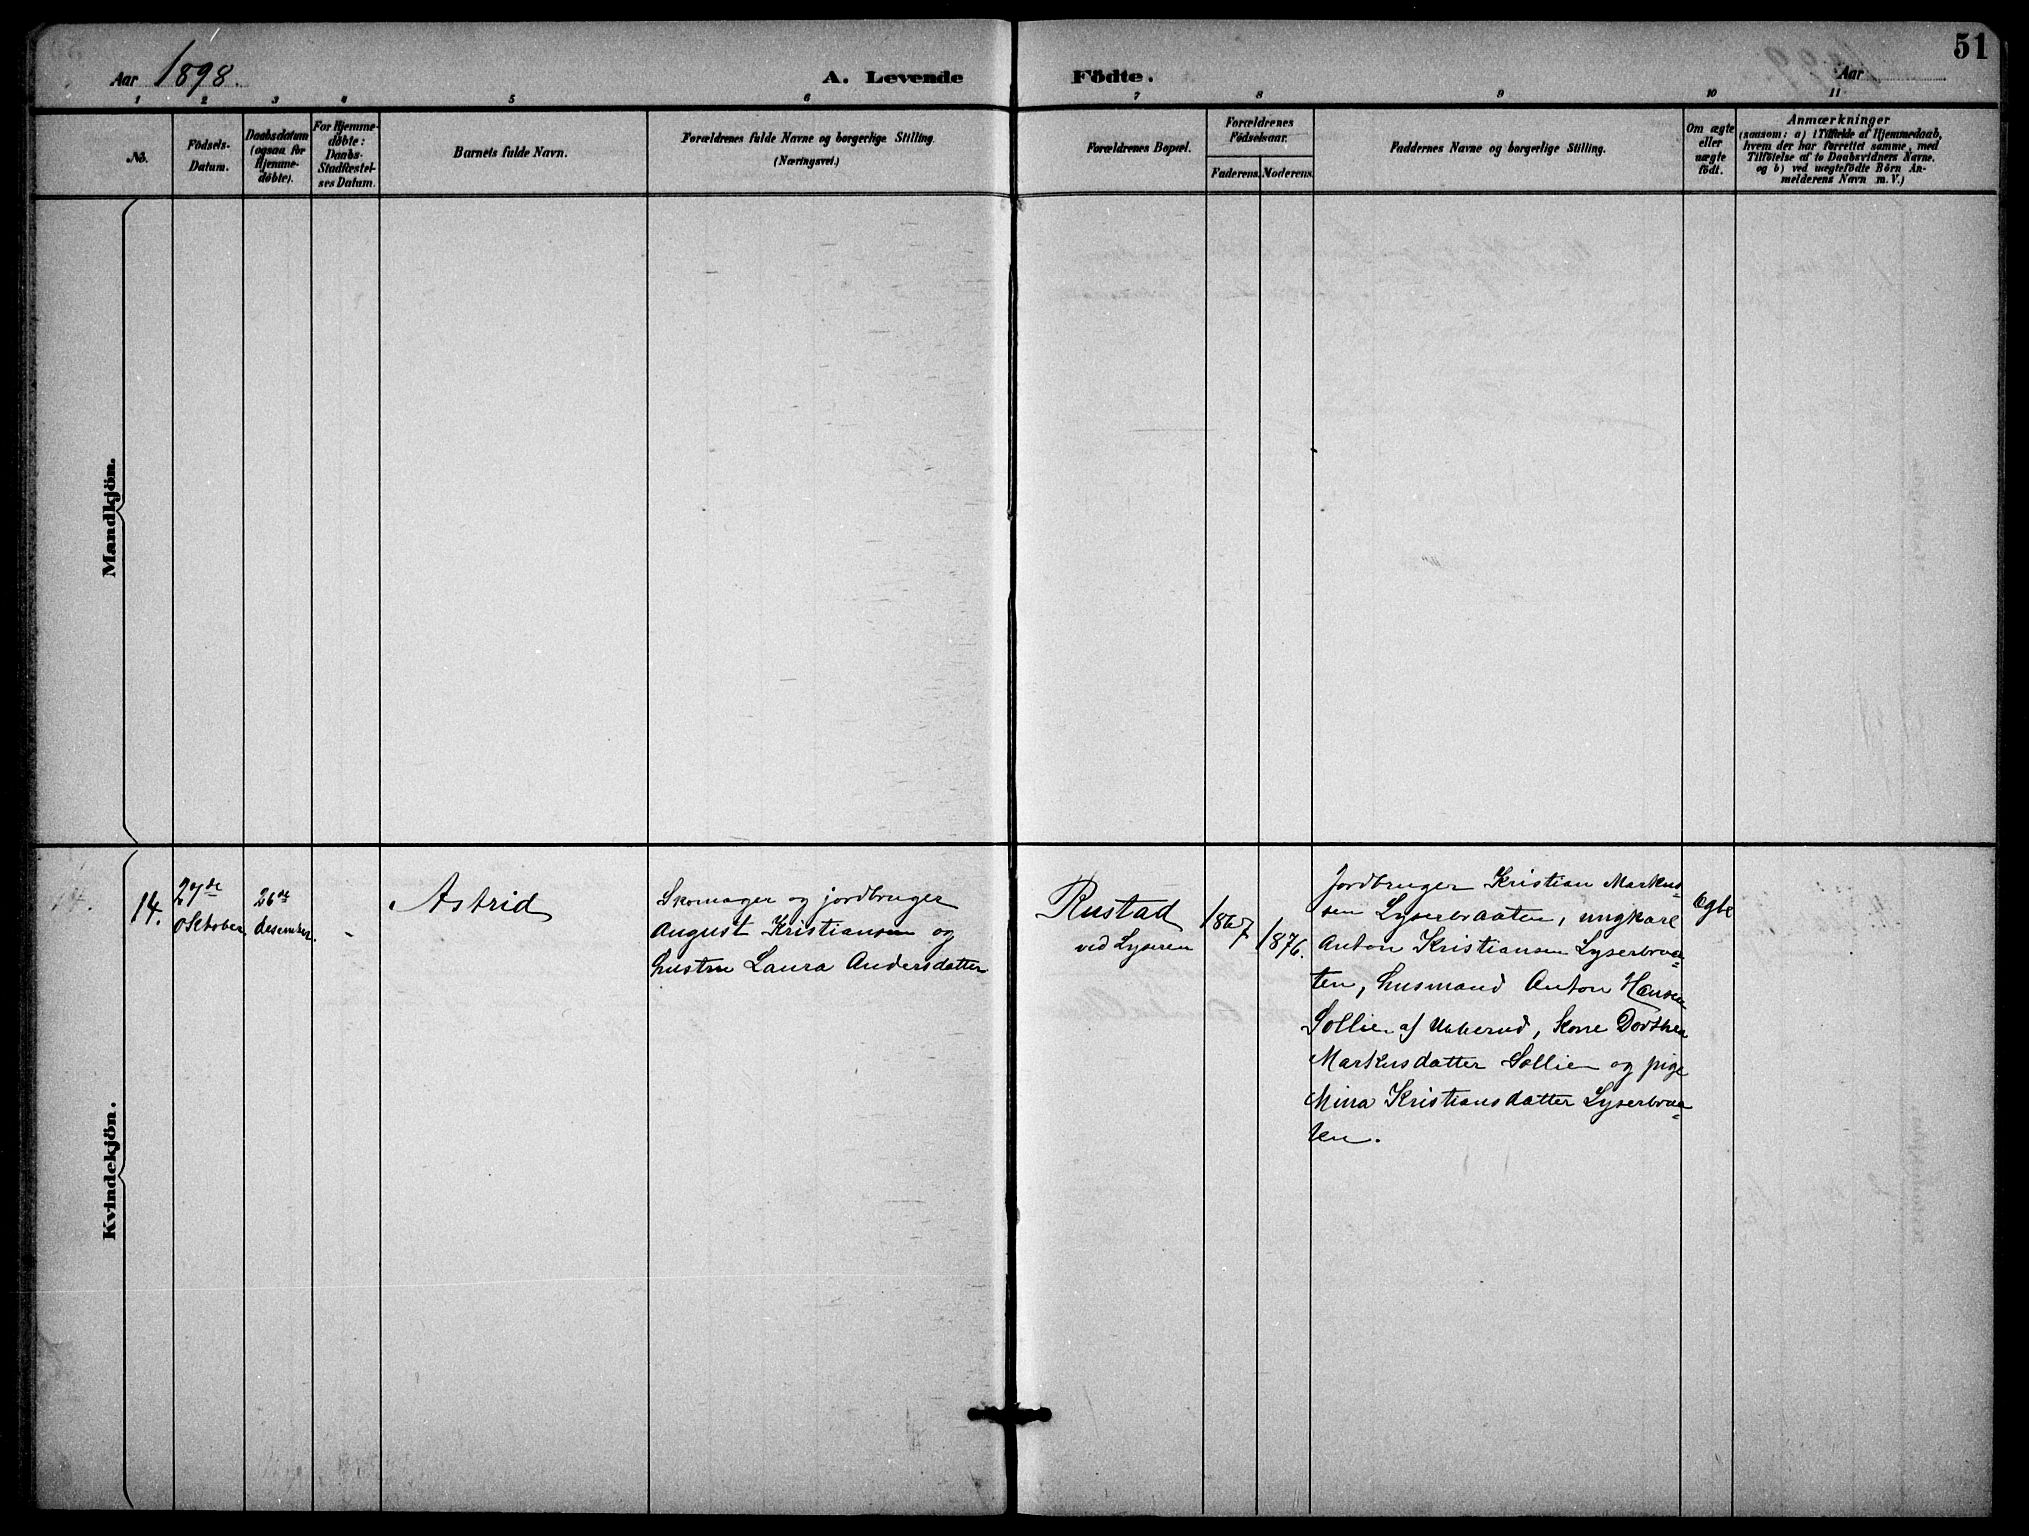 51
Aar 1898.
A. Levende Födte.
Aar
1 2 3 4 5 6 7 8 9 10 11
No.
Födsels-
Datum.
Daabsdatum
(ogsaa for
Hjemme-
döbte).
For Hjemme-
döbte:
Daabs-
Stadfæstel-
ses Datum.
Barnets fulde Navn.
Forældrenes fulde Navne og borgerlige Stilling.
(Næringsvei.)
Forældrenes Bopæl.
Forældrenes
Födselsaar.
Faderens. Moderens.
Faddernes Navne og borgerlige Stilling.
Om ægte
eller
uægte
födt.
Anmærkninger
(saasom: a) i Tilfælde af Hjemmedaab,
hvem der har forrettet samme, med
Tilföielse af to Daabsvidners Navne.
og b) ved uægtefödte Börn An-
melderens Navn m. V.)
Mandkjön.
Kvindekjön.
14.
27de
oktober.
26de
desember.
-
Astrid
Skomager og jordbruger
August Kristiansen og
hustru Laura Andersdatter
Rustad
ved Lyseren
1867
1876.
Jordbruger Kristian Markus-
sen Lyserbraaten, ungkarl
Anton Kristiansen Lyserbraa-
ten, husmand Anton Hansen
Sollien af , kone Dorthea
Markusdatter Sollien og pige
Mina Kristiansdatter Lyserbraa-
ten.
Ægte